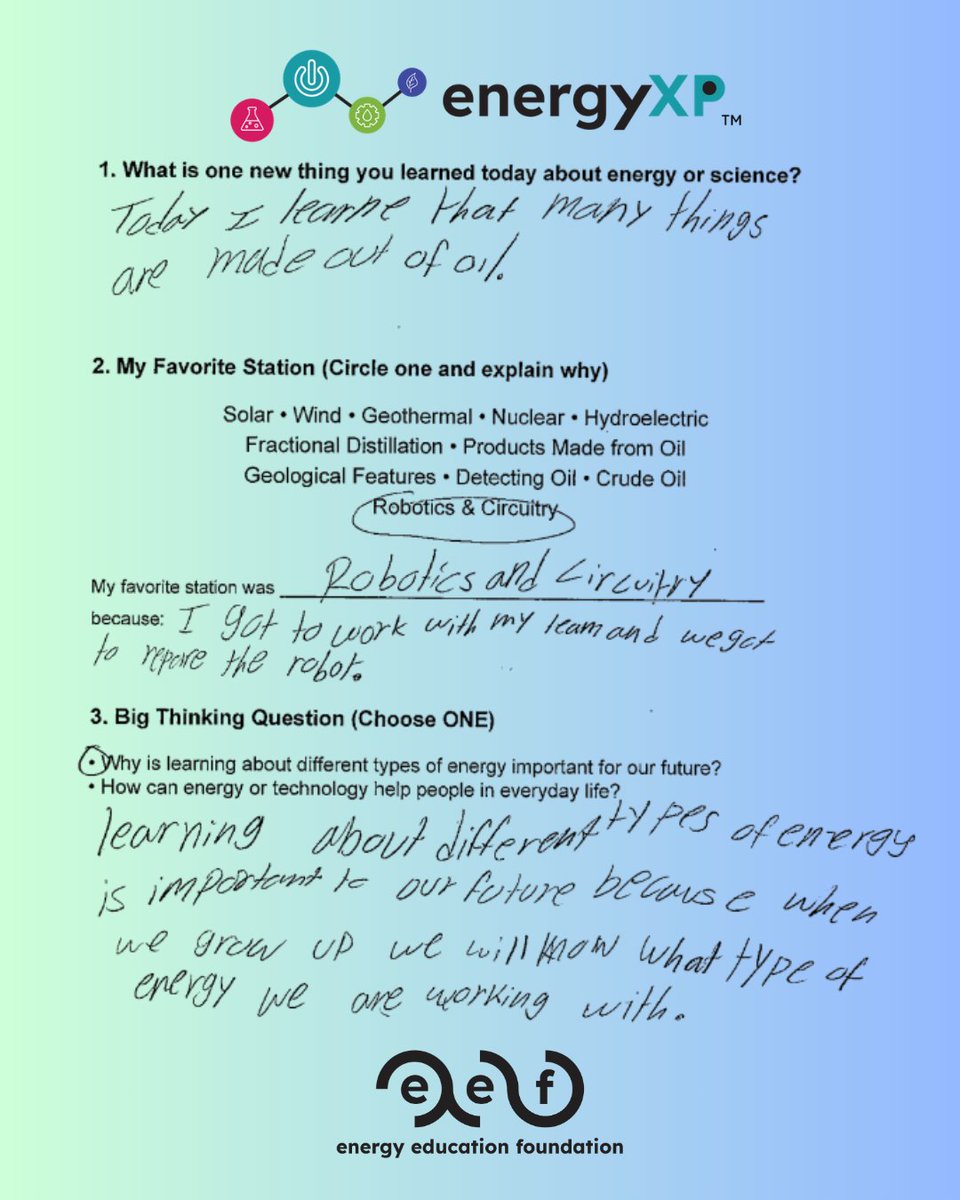 energyXP™
1. What is one new thing you learned today about energy or science?
Today I learne that many things
are made out of oil.
2. My Favorite Station (Circle one and explain why)
Solar • Wind • Geothermal • Nuclear • Hydroelectric
Fractional Distillation • Products Made from Oil
Geological Features • Detecting Oil • Crude Oil
Robotics & Circuitry
My favorite station was Robotics and Circuitry
because: I got to work with my team and we got
to repare the robot.
3. Big Thinking Question (Choose ONE)
• Why is learning about different types of energy important for our future?
• How can energy or technology help people in everyday life?
learning about different types of energy
is important to our future because when
we grow up we will know what type of
energy we are working with.
eef
energy education foundation